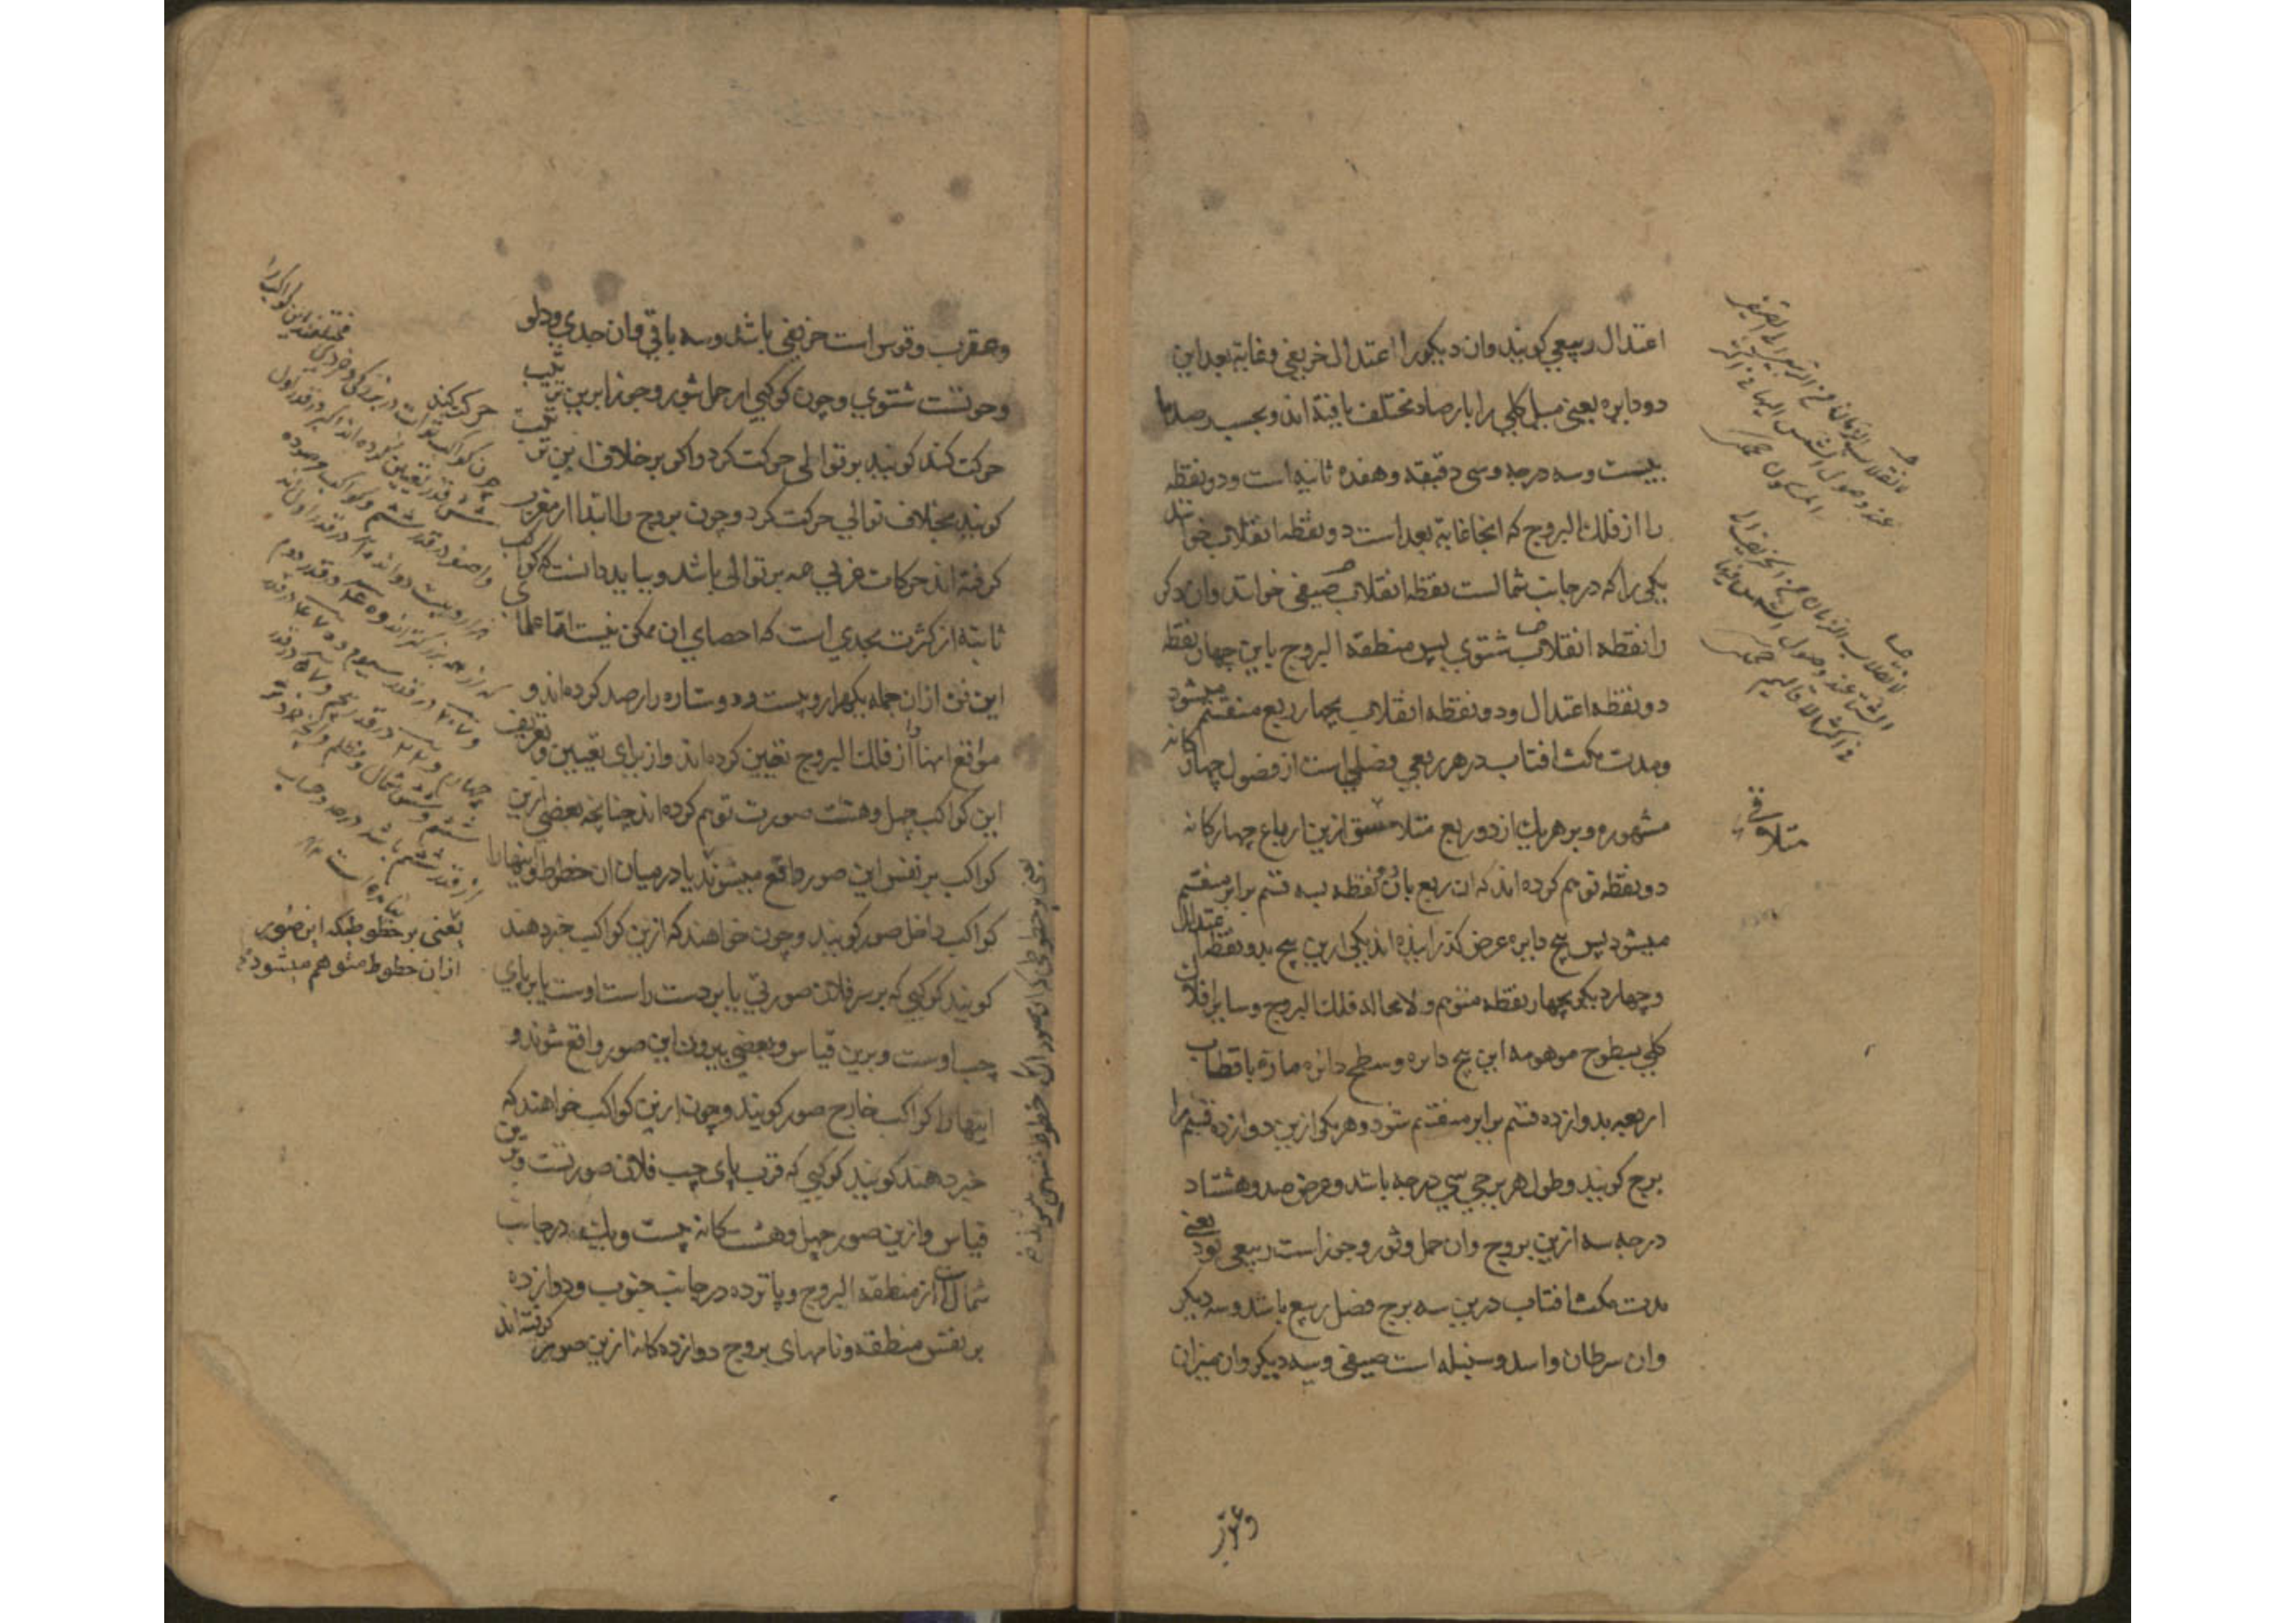 اعتدال ربیعی کویند وان دیکر را اعتدال خریفی وغایة بعد این
دو دایره یعنی میل کلی را بارصاد مختلف یافته اند وبحسب رصد ما
بیست وسه درجه وسی دقیقه وهفده ثانیه است ودو نقطه
را از فلك البروج که انجا غایة بعد است دو نقطه انقلاب خوانند
یکی را که در جانب شمالست نقطه انقلاب صیفی خوانند وان دکر
را نقطه انقلاب شتوی پس منطقة البروج باین چهار نقطه
دو نقطه اعتدال ودو نقطه انقلاب بچهار ربع منقسم میشود
ومدت مکث افتاب در هر ربعی فصلی است از فصول چهارکانه
مشهوره وبر هریك از دو ربع متلاصق ازین ارباع چهارکانه
دو نقطه توهم کرده اند که ان ربع بان دو نقطه بسه قسم برابر منقسم
میشود پس پنج دایره عرض کذرانیده اند یکی ازین پنج بدو نقطه اعتدال
وچهار دیکر بچهار نقطه متوهم ولا محاله فلك البروج وسایر افلاك
کلی بسطوح موهومه این پنج دایره وسطح دائره ماره باقطاب
اربعه بدوازده قسم برابر منقسم شود وهر یکی ازین دوازده قسم را
برج کویند وطول هر برجی سی درجه باشد وعرض صد وهشتاد
درجه سه ازین بروج وان حمل وثور وجوزاست ربیعی بود یعنی
مدت مکث افتاب درین سه برج فصل ربیع باشد وسه دیکر
وان سرطان واسد وسنبله است صیفی وسه دیکر وان میزان
لانقلاب الزمان من الربیع الی الصیف
عند وصول الشمس الیها فی اکثر
المسکون
لانقلاب الزمان من الخریف الی
الشتا عند وصول الشمس الیها
فی اکثر الاقالیم
متلاقی
وعقرب
وعقرب وقوس است خریفی باشد وسه باقی وان جدی ودلو
وحوتست شتوی وچون کوکبی از حمل بثور وجوزا برین ترتیب
حرکت کند کویند بر توالی حرکت کرد واکر بر خلاف این ترتیب
کویند بخلاف توالی حرکت کرد وچون بروج را ابتدا از مغرب
کرفته اند حرکات غربی همه بر توالی باشد وبباید دانست که کواکب
ثابته از کثرت بحدی است که احصای ان ممکن نیست اما علمای
این فن از ان جمله یکهزار وبیست ودو ستاره را رصد کرده اند و
مواقع انها را از فلك البروج تعیین کرده اند واز برای تعیین وتعریف
این کواکب چهل وهشت صورت توهم کرده اند چنانچه بعضی ازین
کواکب بر نفس این صور واقع میشوند یا در میان ان خطوط واینها را
کواکب داخل صور کویند وچون خواهند که ازین کواکب خبر دهند
کویند کوکبی که بر سر فلان صورتی یا بر دست راست اوست یا بر پای
چپ اوست وبرین قیاس وبعضی بیرون این صور واقع شوند و
اینها را کواکب خارج صور کویند وچون ازین کواکب خواهند که
خبر دهند کویند کوکبی که قرب پای چپ فلان صورتست وبرین
قیاس وازین صور چهل وهشت کانه بیست ویك در جانب
شمال است از منطقة البروج وپانزده در جانب جنوب ودوازده
بر نفس منطقه ونامهای بروج دوازده کانه ازین صور کرفته اند
چون کواکب ثوابت در بزرکی وخردی مختلفند این کواکب را
شش قدر تعیین کرده اند اکبر در قدر اول
واصغر در قدر ششم وکواکب مرصوده
هزار وبیست ودو اند ۱۵ در قدر اول اند
که از همه بزرکتر اند و ۴۵ در قدر دوم
و ۲۰۷ در قدر سیوم و ۴۷۴ در قدر
چهارم و ۲۱۷ در قدر پنجم و ۴۹ در قدر
یعنی بر خطوطیکه این صور
از ان خطوط متوهم میشود
یعنی بر خطوطی که ان صور از ان خطوط متوهم میشوند